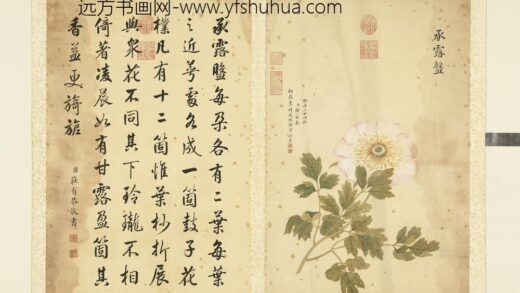 远方书画网-www.yfshuhua.com
承露盤
承露盤每朶各有二葉每葉
之近萼處各成一箇鼓子花
樸凡有十二箇惟葉杪折展
與衆花不同其下玲瓏不相
倚著凌晨如有甘露盈箇其
香益更旖旎
臣莊有恭敬書